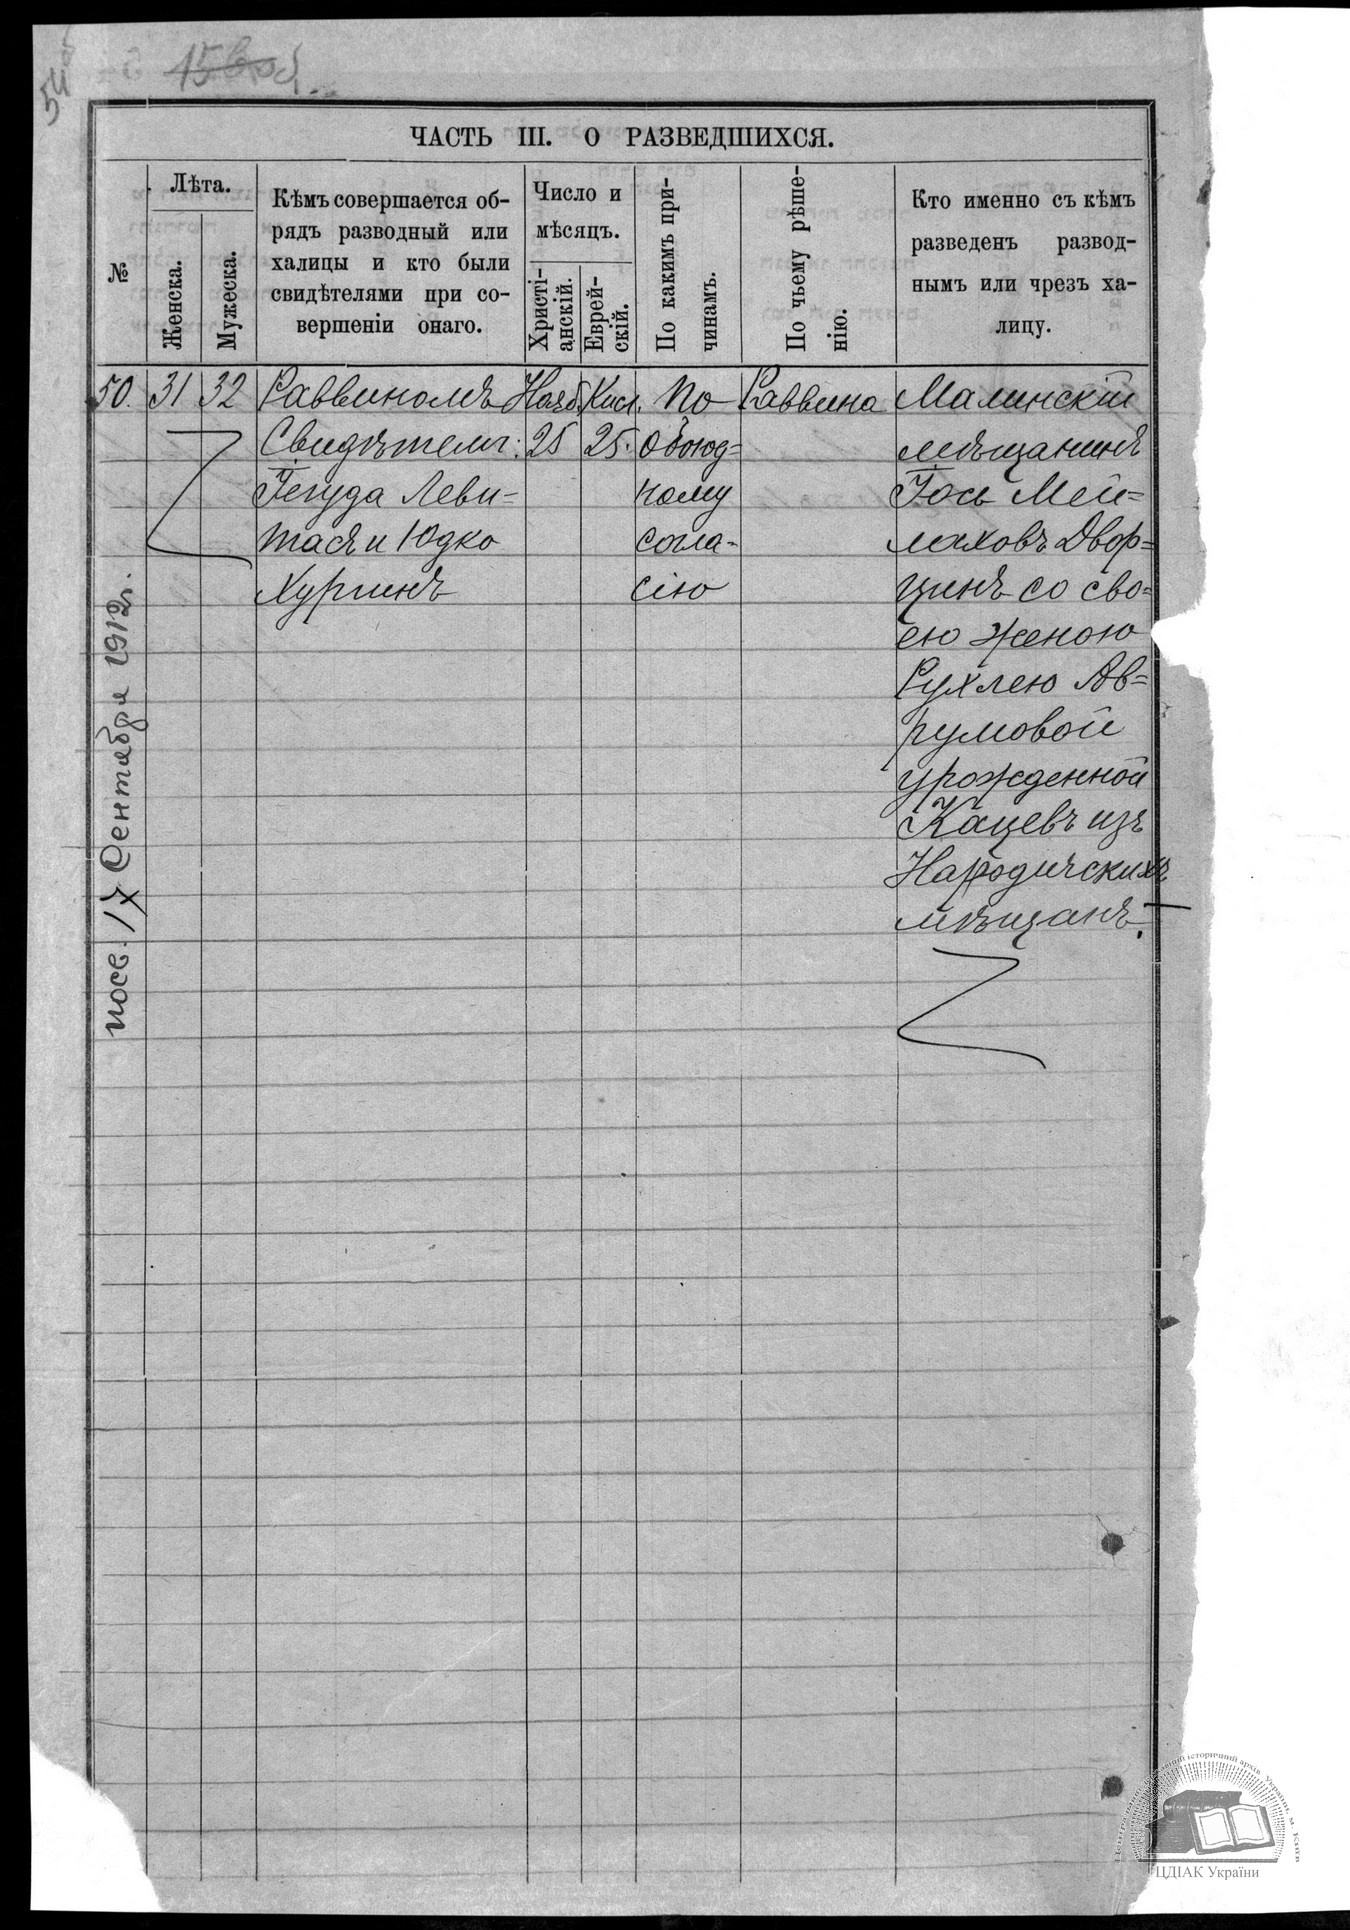 54
ЧАСТЬ III. О РАЗВЕДШИХСЯ.
№
Лѣта.
Женска.
Мужеска.
Кѣмъ совершается об-
рядъ разводный или
халицы и кто были
свидѣтелями при со-
вершеніи онаго.
Число и
мѣсяцъ.
Христі-
анскій.
Еврей-
скій.
По какимъ при-
чинамъ.
По чьему рѣше-
нію.
Кто именно съ кѣмъ
разведенъ развод-
нымъ или чрезъ ха-
лицу.
50.
31
32
Раввиномъ
Свидѣтели:
Іегуда Леви-
тасъ и Юдко
Хургинъ
Нояб.
25
Кисл.
25.
По
обоюд=
ному
согла-
сію
Раввина
Малинскій
мѣщанинъ
Іось Мей=
лаховъ Двор=
цинъ со сво=
ею женою
Рухлею Ав=
румовой
урожденной
Кацевъ изъ
Народичскихъ
мѣщанъ.
17 Сентября 1912г.
ЦДІАК України